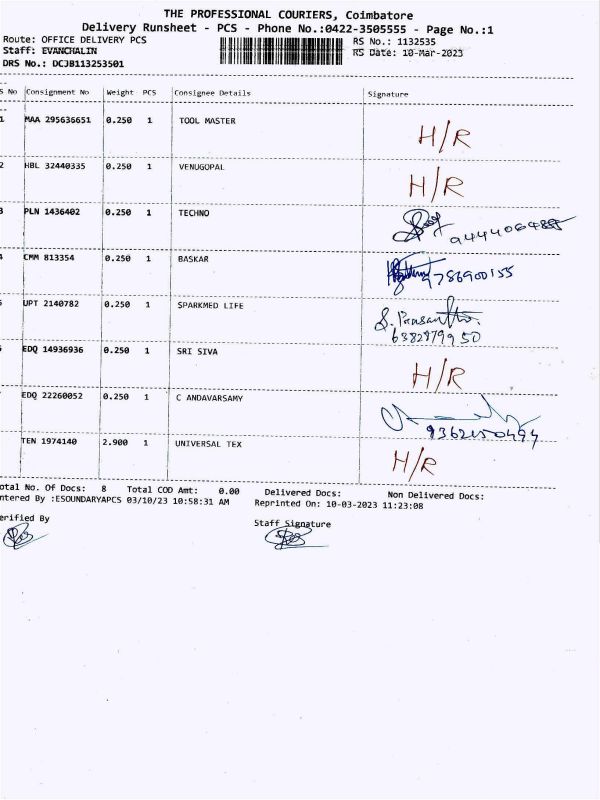 THE PROFESSIONAL COURIERS, Coimbatore
Delivery Runsheet - PCS - Phone No.:0422-3505555 - Page No.:1
Route: OFFICE DELIVERY PCS RS No.: 1132535
Staff: EVANCHALIN RS Date: 10-Mar-2023
DRS No.: DCJB113253501
S No Consignment No Weight PCS Consignee Details Signature
1 MAA 295636651 0.250 1 TOOL MASTER H/R
2 HBL 32440335 0.250 1 VENUGOPAL H/R
3 PLN 1436402 0.250 1 TECHNO
4 CMM 813354 0.250 1 BASKAR 9786900155
5 UPT 2140782 0.250 1 SPARKMED LIFE
6382979950
EDQ 14936936 0.250 1 SRI SIVA H/R
EDQ 22260052 0.250 1 C ANDAVARSAMY
TEN 1974140 2.900 1 UNIVERSAL TEX H/R
otal No. Of Docs: 8 Total COD Amt: 0.00 Delivered Docs: Non Delivered Docs:
ntered By :ESOUNDARYAPCS 03/10/23 10:58:31 AM Reprinted On: 10-03-2023 11:23:08
erified By Staff Signature